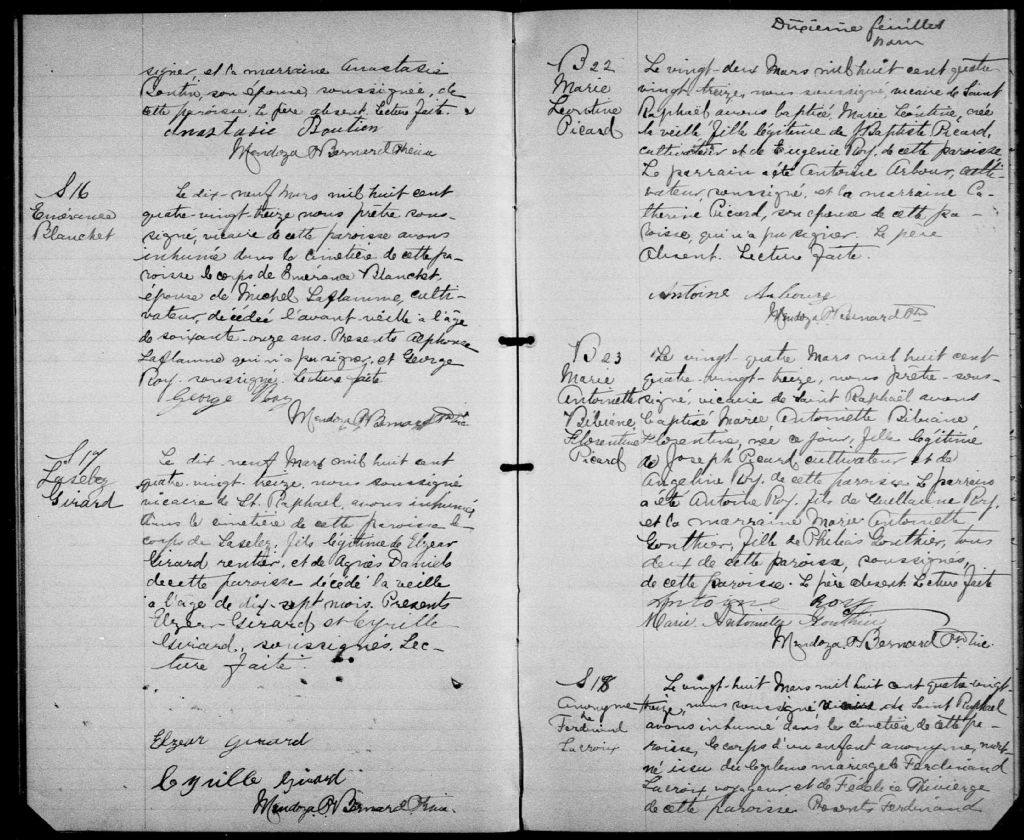 signé, et la marraine Anastasie
son épouse, soussignée, de
cette paroisse, le père absent. Lecture faite.
Anastasie Boutin
Mendoza P Bernard Ptre vica
S 16
Emérance
Blanchet
Le dix-neuf Mars mil huit cent
quatre-vingt-treize nous prêtre sous-
signé, vicaire de cette paroisse avons
inhumé dans le cimetière de cette pa-
roisse le corps de Emérance Blanchet,
épouse de Michel Laflamme, culti-
vateur, décédée l'avant-veille à l'âge
de soixante-onze ans. Presents Alphonse
Laflamme qui n'a pu signer, et George
Roy, soussigné. Lecture faite
George Roy
Mendoza P Bernard Ptre Vic
S 17
Laselez
Girard
Le dix-neuf Mars mil huit cent
quatre-vingt-treize, nous soussigné
vicaire de St. Raphael, avons inhumé
dans le cimetière de cette paroisse le
corps de Laselez, fils légitime de Elzear
Girard rentier, et de Agnès Daniels
de cette paroisse décédé la veille
à l'age de dix-sept mois. Presents
Elzear Girard et Cyrille
Girard, soussignés, Lec-
ture faite.
Elzear Girard
Cyrille Girard
Mendoza P Bernard Ptre vica.
Dixième feuillet
B 22
Marie
Léontine
Picard
Le vingt-deux Mars mil huit cent quatre
vingt treize, nous soussigné, vicaire de Saint
Raphaël avons baptisé Marie Léontine, née
la veille fille légitime de JBaptiste Picard,
cultivateur et de Eugénie Roy, de cette paroisse
Le parrain a été Antoine Arbour, culti-
vateur, soussigné, et la marraine Ca-
therine Picard, son épouse de cette pa-
roisse, qui n'a pu signer. Le père
absent. Lecture faite.
Antoine Arbour
Mendoza P Bernard Ptre
B 23
Marie
Antoinette
Bibiane
Florentine
Picard
Le vingt-quatre Mars mil huit cent
quatre-vingt-treize, nous prêtre-sous-
signé, vicaire de Saint Raphaël avons
baptisé Marie Antoinette Bibiane
Florentine, née ce jour, fille légitime
de Joseph Picard cultivateur et de
Angeline Roy, de cette paroisse. Le parrain
a été Antoine Roy, fils de Guillaume Roy,
et la marraine Marie Antoinette
Gonthier, fille de Philéas Gonthier, tous
deux de cette paroisse, soussignés,
de cette paroisse. Le père absent. Lecture faite
Antoine Roy
Marie Antoinette Gonthier
Mendoza P Bernard Ptre Vic.
S 18
Anonyme
de
Ferdinand
Lacroix
Le vingt-huit Mars mil huit cent quatre-vingt-
treize, nous soussigné vicaire de Saint Raphael
avons inhumé dans le cimetière de cette pa-
roisse, le corps d'un enfant anonyme, mort
né issu du légitime mariage de Ferdinand
Lacroix voyageur et de Fédélice Thivierge
de cette paroisse Presents Ferdinand